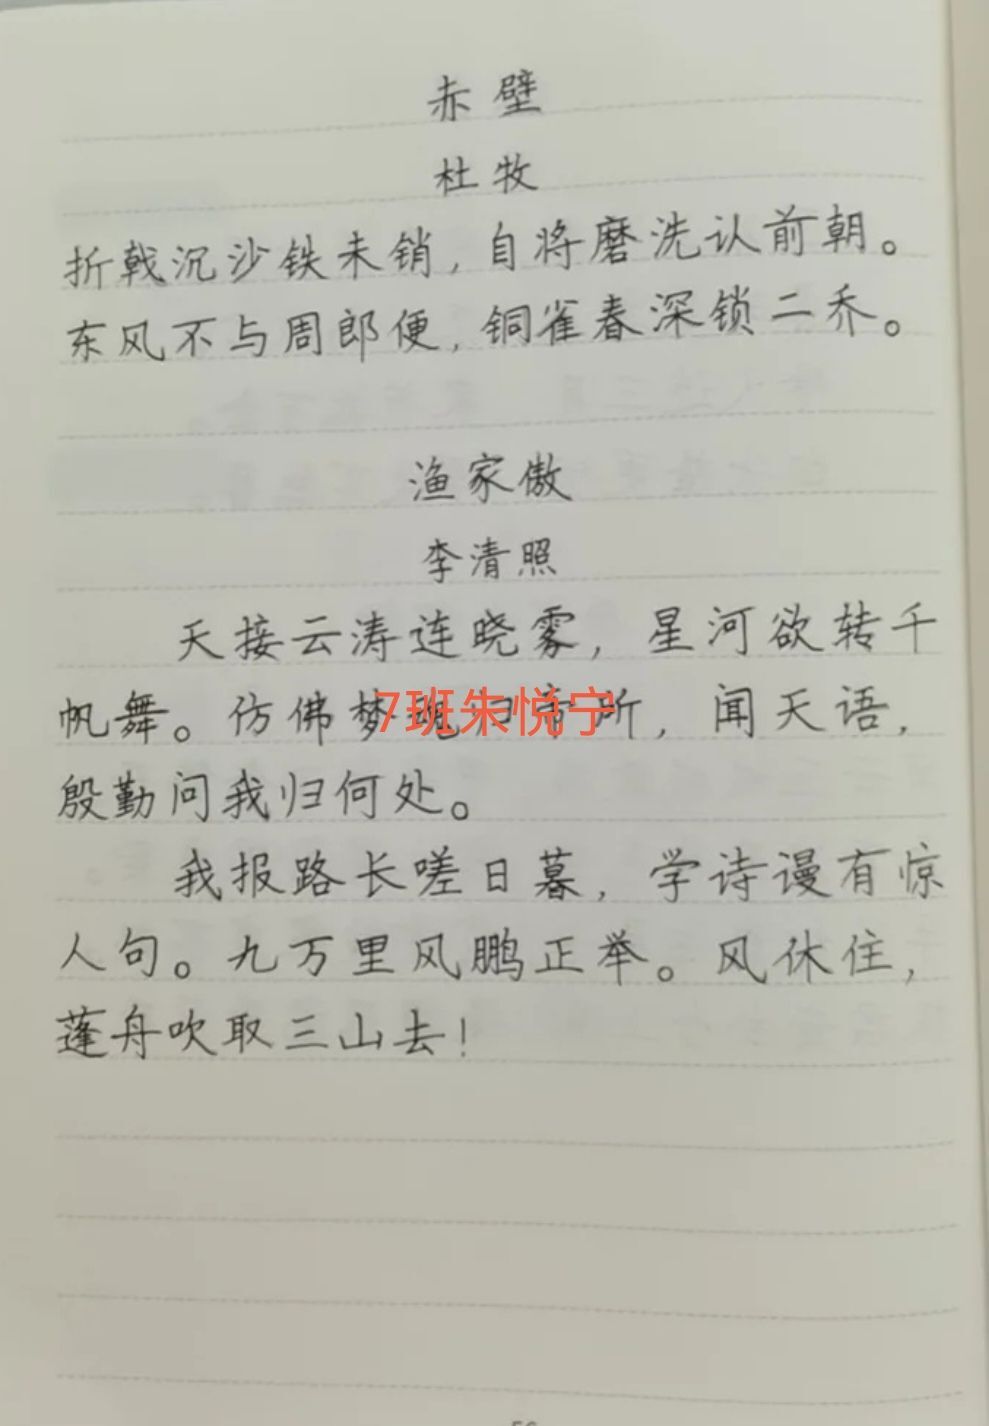 赤壁
杜牧
折戟沉沙铁未销,自将磨洗认前朝。
东风不与周郎便,铜雀春深锁二乔。
渔家傲
李清照
天接云涛连晓雾,星河欲转千
帆舞。仿佛梦魂归帝所,闻天语,
7班朱悦宁
殷勤问我归何处。
我报路长嗟日暮,学诗谩有惊
人句。九万里风鹏正举。风休住,
蓬舟吹取三山去!